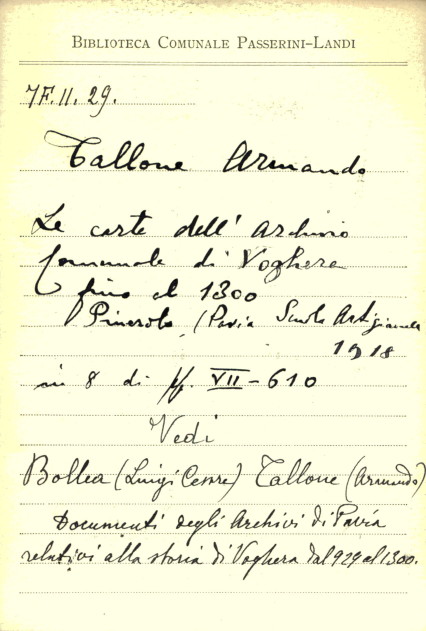 BIBLIOTECA COMUNALE PASSERINI-LANDI
7F.II.29.
Tallone Armando
Le carte dell' Archivio
Comunale di Voghera
fino al 1300
Pinerolo (Pavia Scuola Artigianelli
1918
in 8 di pp. VII-610
Vedi
Bollea (Luigi Cesare) Tallone (Armando)
Documenti degli Archivi di Pavia
relativi alla storia di Voghera dal 929 al 1300.